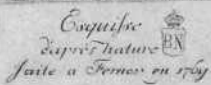 Esquisse
d'après Nature BN
faite a Ferney en 1769